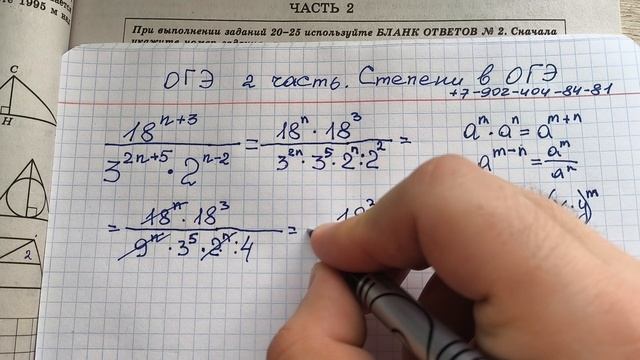 ЧАСТЬ 2
При выполнении заданий 20–25 используйте БЛАНК ОТВЕТОВ № 2. Сначала
укажите номер
ОГЭ 2 часть. Степени в ОГЭ
+7-902-404-84-81
18^{n+3} / (3^{2n+5} · 2^{n-2}) = (18^n · 18^3) / (3^{2n} · 3^5 · 2^n : 2^2) =
a^m · a^n = a^{m+n}
a^{m-n} = a^m / a^n
= (18^n · 18^3) / (9^n · 3^5 · 2^n : 4) =
1995
C
H
2